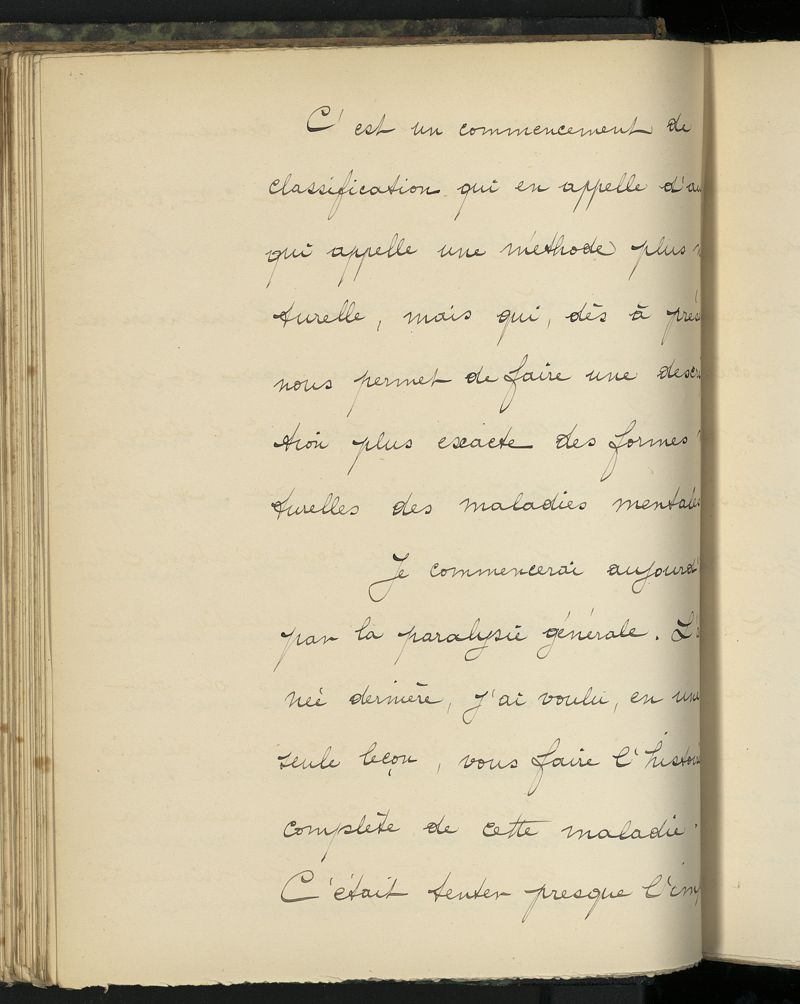 C'est un commencement de
classification qui en appelle
qui appelle une méthode plus
turelle, mais qui, dès à
nous permet de faire une
tion plus exacte des formes
turelles des maladies mentales
Je commencerai aujourd'
par la paralysie générale.
née dernière, j'ai voulu, en une
seule leçon, vous faire l'histoire
complète de cette maladie.
C'était tenter presque